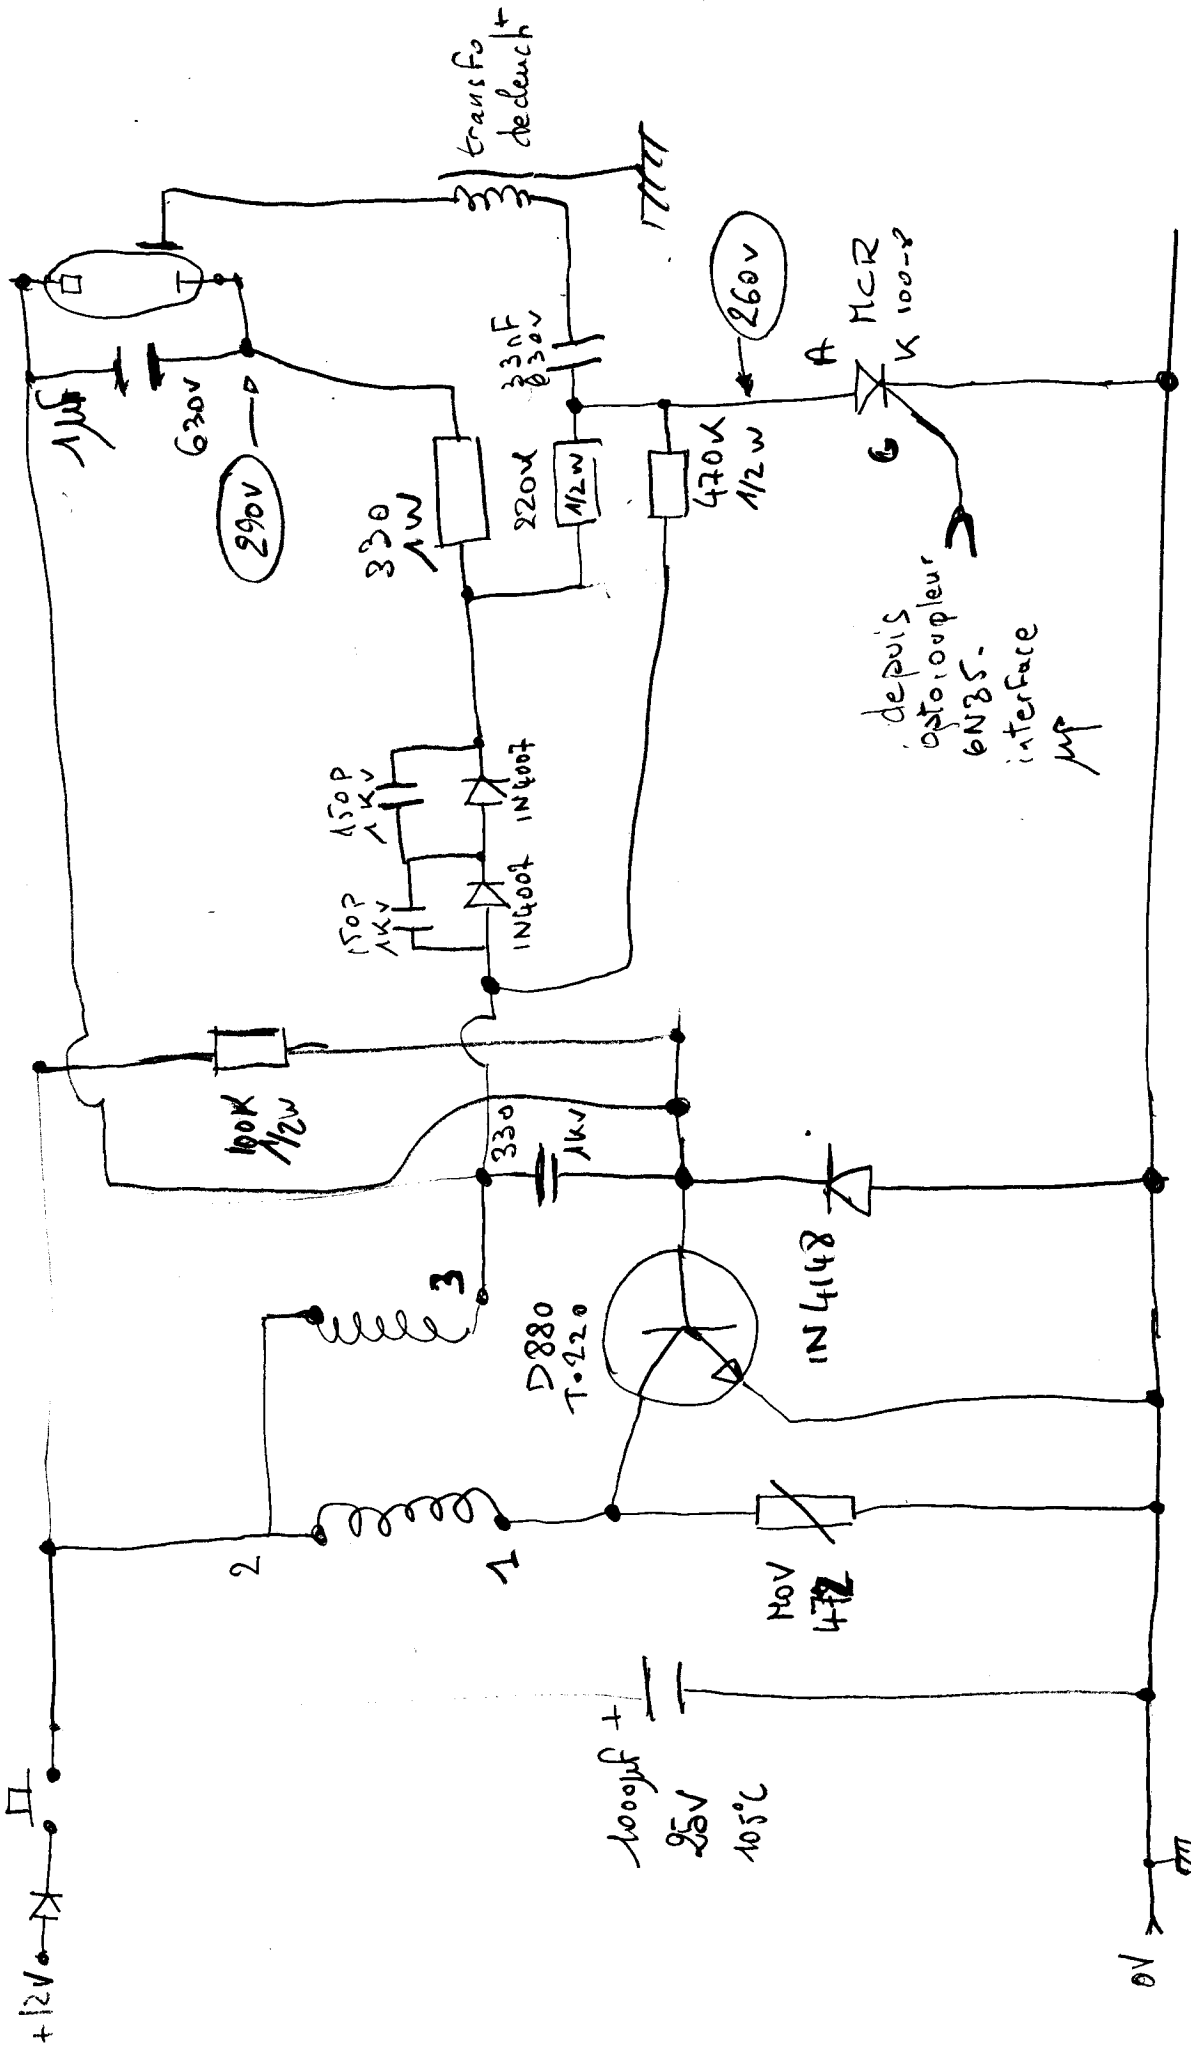 +12V
2
1
3
1000µF +
25V
105°C
0V
MOV
472
D880
To.220
1N4148
100K
1/2W
330
1kv
150p
1kv
150p
1kv
1N4007
1N4007
330
1W
220K
1/2W
470K
1/2W
33nF
630v
1µF
630v
290v
260v
transfo
declencht
A
MCR
100-8
K
G
depuis
optocoupleur
6N35-
interface
µP